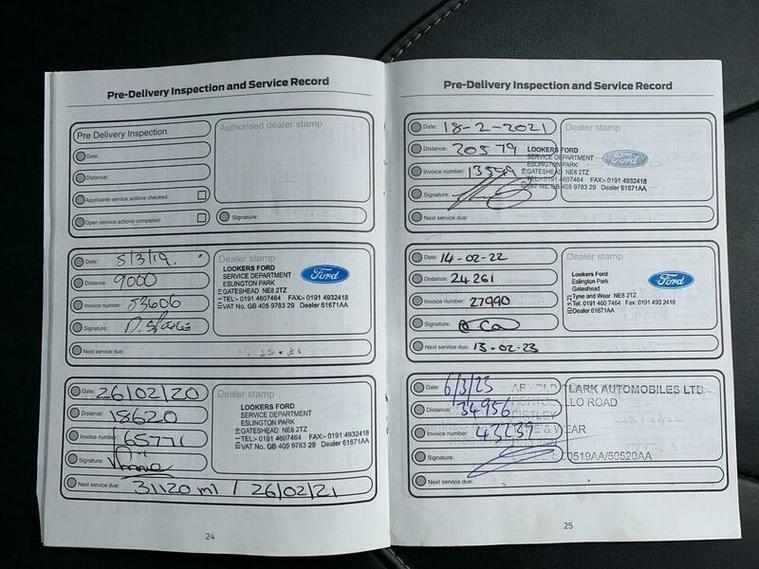 Pre-Delivery Inspection and Service Record
Pre Delivery Inspection
Authorised dealer stamp
Date:
Distance:
Applicable service actions checked:
Open service actions completed:
Signature:
Date: 5/3/19.
Dealer stamp
Distance: 9000
Invoice number: 53606
Signature:
Next service due:
LOOKERS FORD
SERVICE DEPARTMENT
ESLINGTON PARK
GATESHEAD NE8 2TZ
TEL:- 0191 4607464 FAX:- 0191 4932418
VAT No. GB 405 9783 29 Dealer 61671AA
Ford
Date: 26/02/20
Dealer stamp
Distance: 18620
Invoice number: 65771
Signature:
Next service due: 31120 ml / 26/02/21
LOOKERS FORD
SERVICE DEPARTMENT
ESLINGTON PARK
GATESHEAD NE8 2TZ
TEL:- 0191 4607464 FAX:- 0191 4932418
VAT No. GB 405 9783 29 Dealer 61671AA
24
Pre-Delivery Inspection and Service Record
Date: 18-2-2021
Dealer stamp
Distance: 20579
Invoice number:
Signature:
Next service due:
LOOKERS FORD
SERVICE DEPARTMENT
ESLINGTON PARK
GATESHEAD NE8 2TZ
TEL:- 0191 4607464 FAX:- 0191 4932418
VAT No. GB 405 9783 29 Dealer 61671AA
Ford
Date: 14-02-22
Dealer stamp
Distance: 24261
Invoice number: 27990
Signature:
Next service due: 13-02-23
Lookers Ford
Eslington Park
Gateshead
Tyne and Wear NE8 2TZ
Tel: 0191 460 7464 Fax: 0191 493 2418
Dealer 61671AA
Ford
Date: 6/3/23
CLARK AUTOMOBILES LTD
Distance: 34956
ROAD
Invoice number: 43237
& WEAR
Signature:
50519AA/50520AA
25